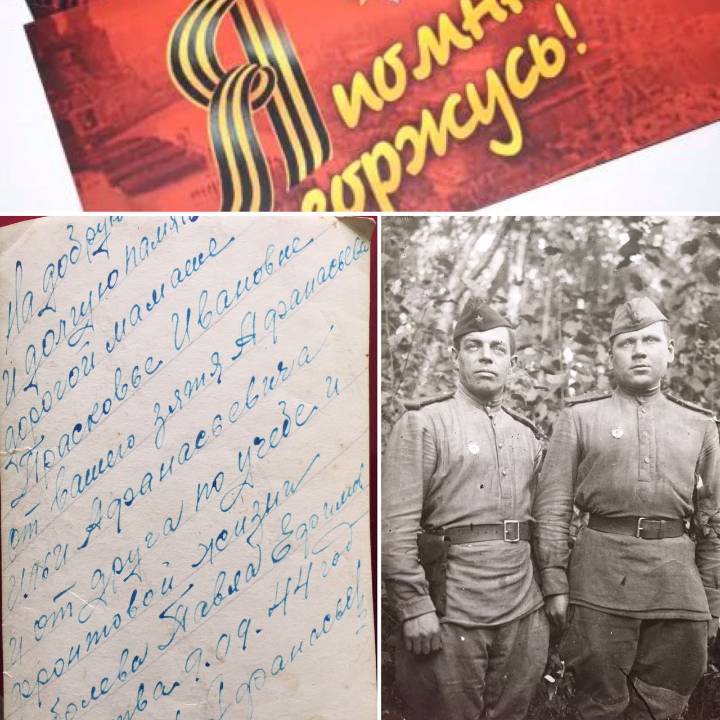 Я
помню
горжусь!
На добрую
и долгую память
дорогой мамаше
Прасковье Ивановне
от вашего зятя Афанасьева
Ильи Афанасьевича
и от друга по учебе и
фронтовой жизни
Павла Ефимов
9.09.44 год
Афанасьев